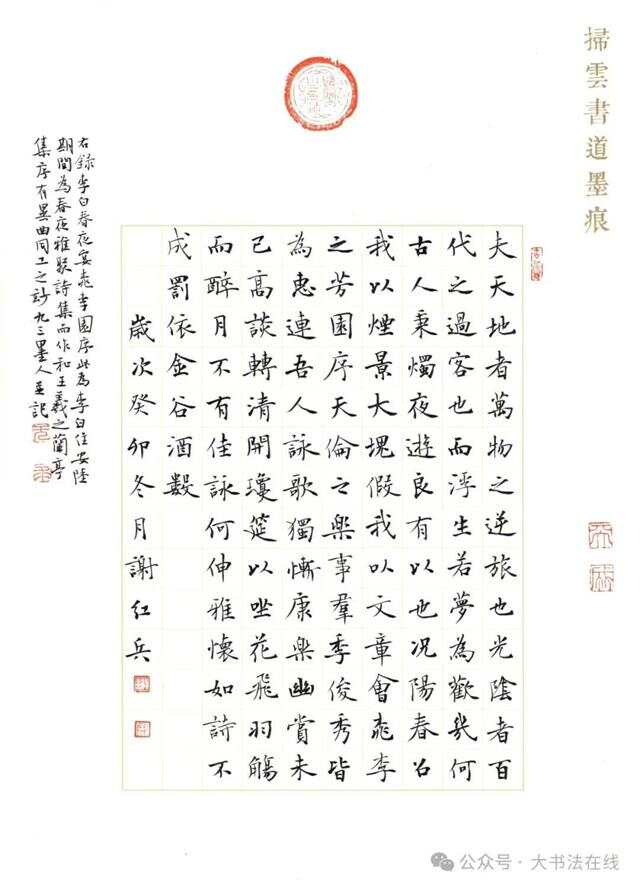 掃雲書道墨痕
夫天地者萬物之逆旅也光陰者百
代之過客也而浮生若夢為歡幾何
古人秉燭夜遊良有以也況陽春召
我以煙景大塊假我以文章會桃李
之芳園序天倫之樂事羣季俊秀皆
為惠連吾人詠歌獨慚康樂幽賞未
已高談轉清開瓊筵以坐花飛羽觴
而醉月不有佳詠何伸雅懷如詩不
成罰依金谷酒數
歲次癸卯冬月謝紅兵
右錄李白春夜宴桃李園序此為李白住安陸
期間為春夜雅聚詩集而作和王羲之蘭亭
集序有異曲同工之妙九三墨人並記
公众号·大书法在线